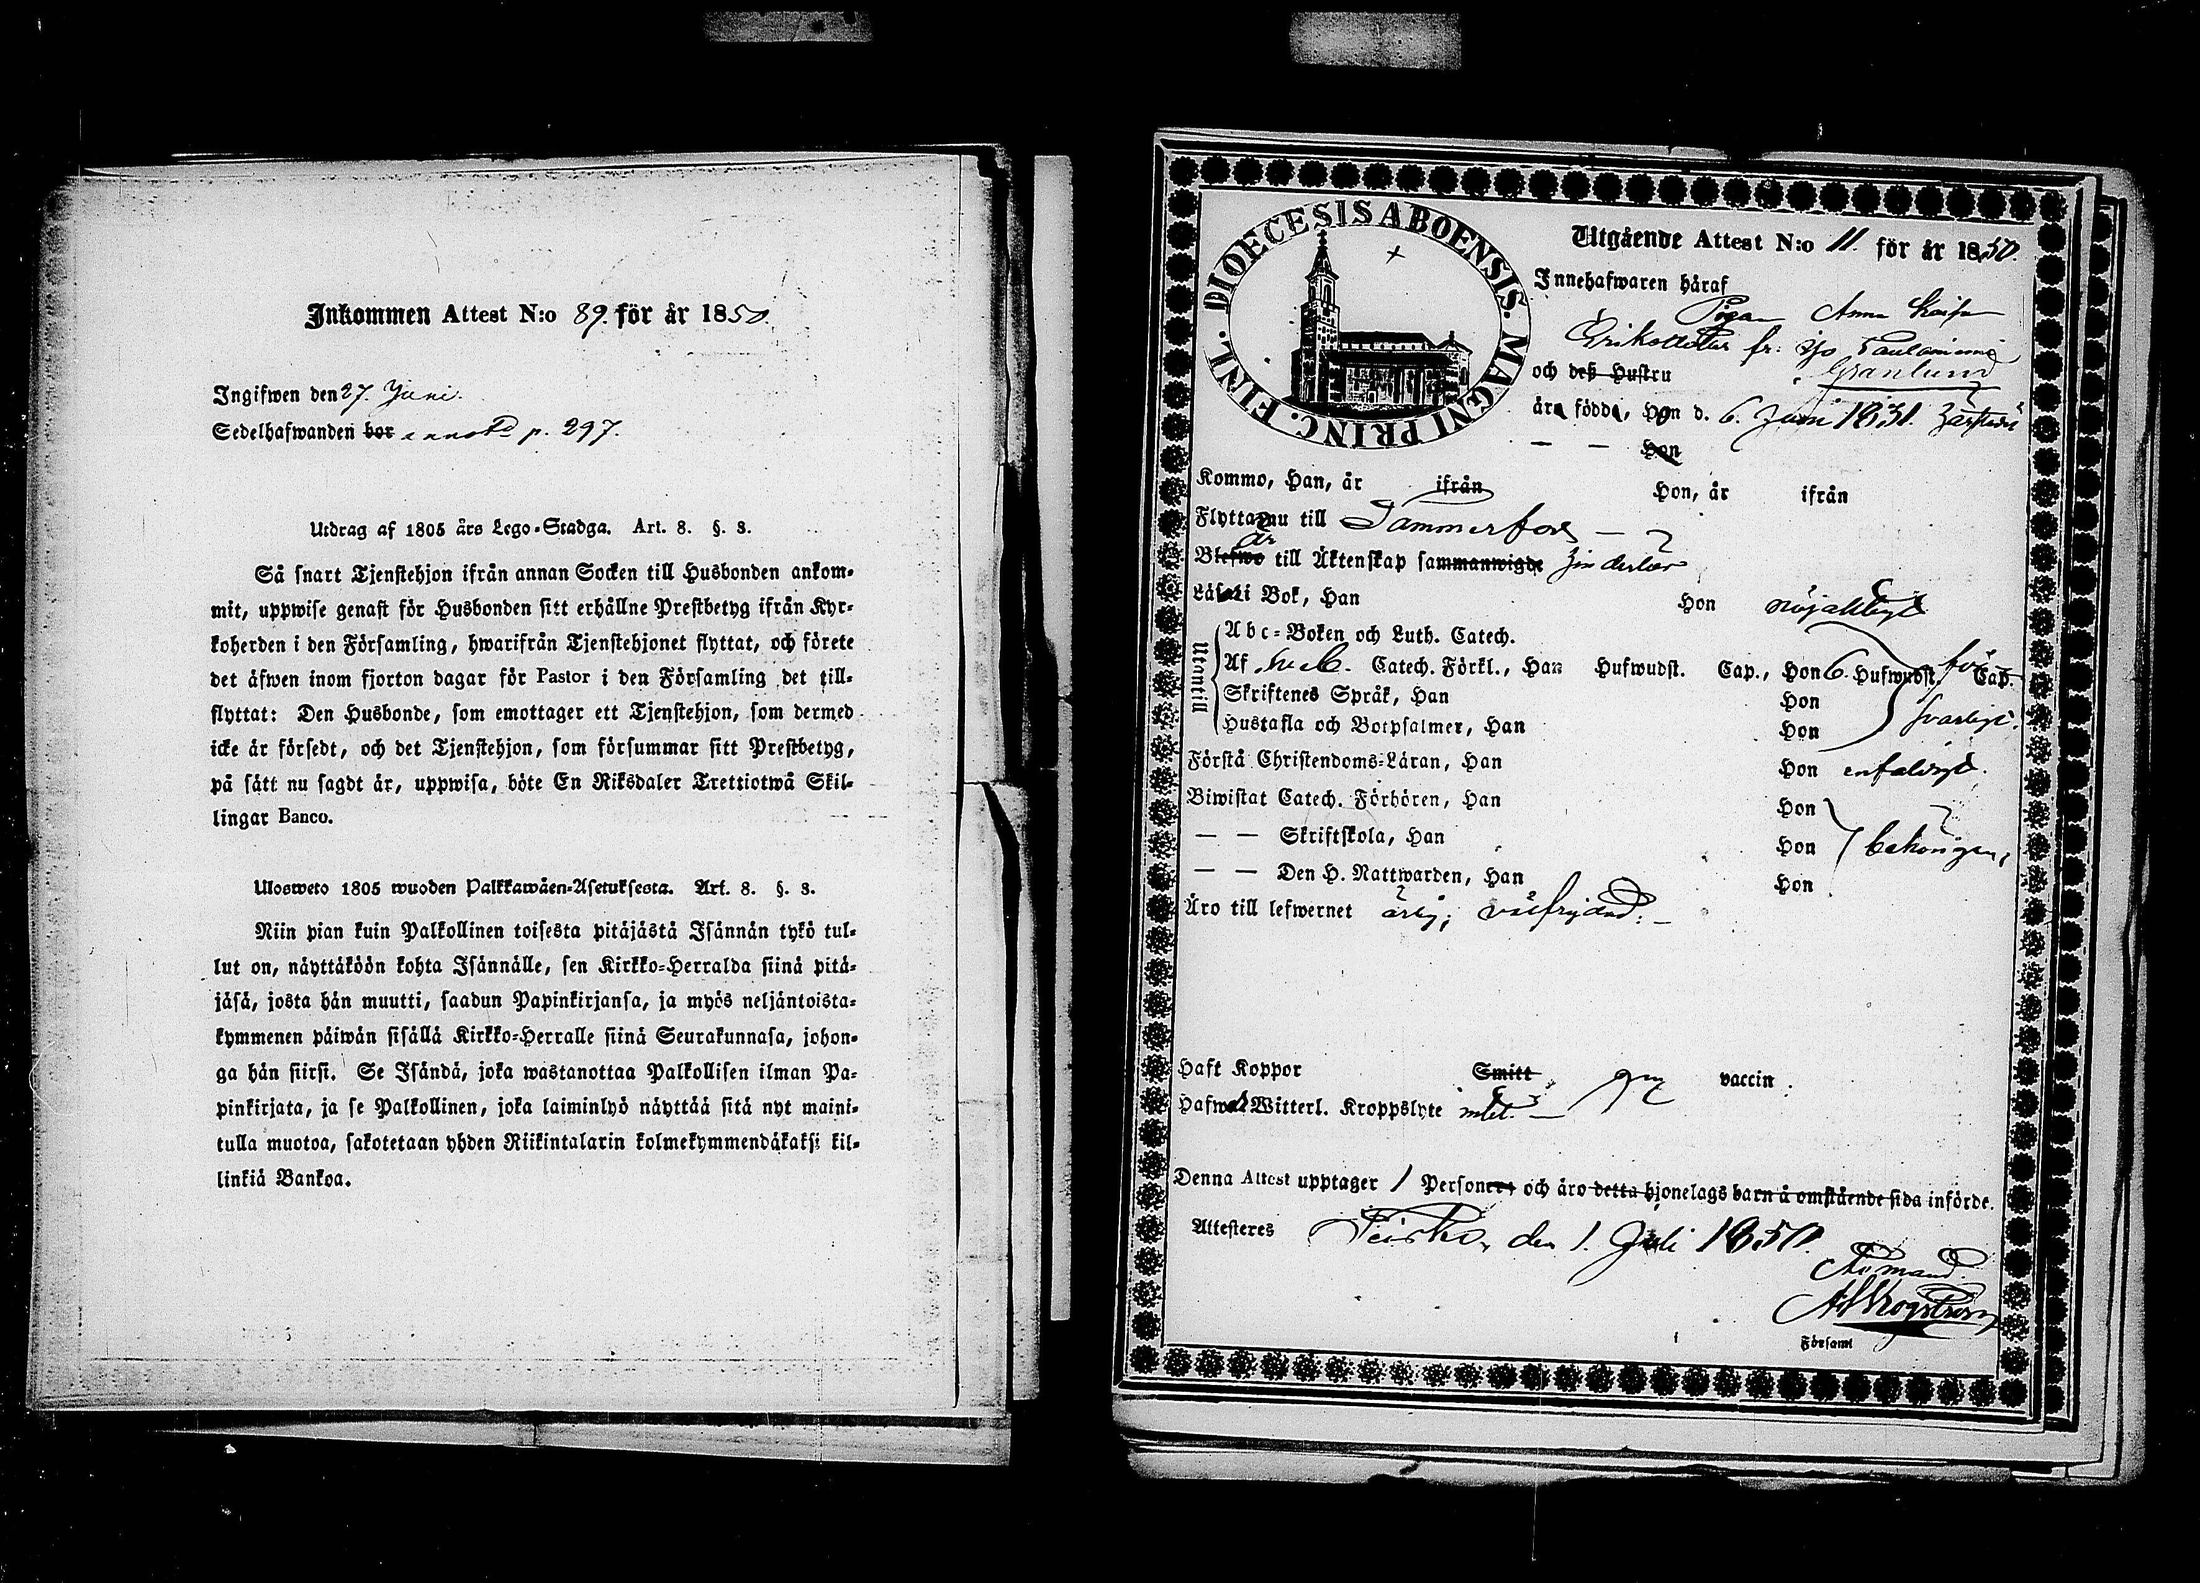 Inkommen Attest N:o 89. för år 1850.
Ingifwen den 27. Juni.
Sedelhafwanden bor annot. p. 297.
Utdrag af 1805 års Lego-Stadga. Art. 8. §. 8.
Så snart Tjenstehjon ifrån annan Socken till Husbonden ankom-
mit, uppwise genast för Husbonden sitt erhållne Prestbetyg ifrån Kyr-
koherden i den Församling, hwarifrån Tjenstehjonet flyttat, och förete
det äfwen inom fjorton dagar för Pastor i den Församling det till-
flyttat: Den Husbonde, som emottager ett Tjenstehjon, som dermed
icke är försedt, och det Tjenstehjon, som försummar sitt Prestbetyg,
på sätt nu sagdt är, uppwisa, böte En Riksdaler Trettiotwå Skil-
lingar Banco.
Ulosweto 1805 wuoden Palkkawäen-Asetuksesta. Art. 8. §. 8.
Niin pian kuin Palkollinen toisesta pitäjästä Isännän tykö tul-
lut on, näyttäköön kohta Isännälle, sen Kirkko-Herralda siinä pitä-
jäsä, josta hän muutti, saadun Papinkirjansa, ja myös neljäntoista-
kymmenen päiwän sisällä Kirkko-Herralle siinä Seurakunnasa, johon-
ga hän siirsi. Se Isändä, joka wastanottaa Palkollisen ilman Pa-
pinkirjata, ja se Palkollinen, joka laiminlyö näyttää sitä nyt maini-
tulla muotoa, sakotetaan yhden Riikintalarin kolmekymmendäkaksi kil-
linkiä Bankoa.
DIOECESIS ABOENSIS. MAGNI PRINC. FINL.
Utgående Attest N:o 11. för år 1850.
Innehafwaren häraf
Pigan Anna Kaisa
Eriksdotter fr.
och deß Hustru Granlund
äro födde, Hon d. 6. Juni 1831.
— — Hon
Kommo, Han, år ifrån Hon, år ifrån
Flytta nu till Tammerfors —
Blefwo är till Äktenskap sammanwigde hinderlös
Läsa i Bok, Han Hon nöjaktligt
Utantill
Abc-Boken och Luth. Catech.
Af Sveb. Catech. Förkl., Han Hufwudst. Cap., Hon 6. Hufwudst. Cap.
Skriftenes Språk, Han Hon
Hustafla och Botpsalmer, Han Hon
för
svarligt.
Förstå Christendoms-Läran, Han Hon enfaldigt.
Biwistat Catech. Förhören, Han Hon
— — Skriftskola, Han Hon behörigen,
— — Den H. Nattwarden, Han Hon
Äro till lefwernet ärlig, välfrejdad. —
Haft Koppor Smitt vaccin.
Hafwa Witterl. Kroppslyte intet —
Denna Attest upptager 1 Personer och äro detta hjonelags barn å omstående sida införde.
Attesteres Teisko, den 1. Juli 1850.
Församl